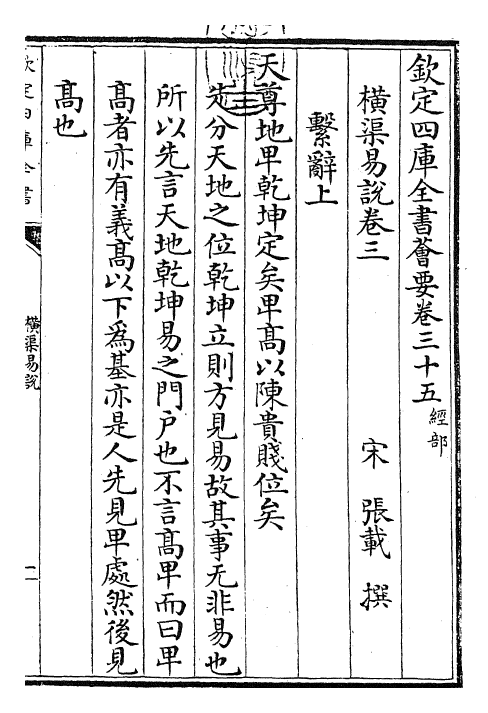 欽定四庫全書薈要卷三十五 經部
橫渠易說卷三 宋 張載 撰
繫辭上
天尊地卑乾坤定矣卑高以陳貴賤位矣
先分天地之位乾坤立則方見易故其事无非易也
所以先言天地乾坤易之門户也不言高卑而曰卑
高者亦有義高以下爲基亦是人先見卑處然後見
高也
欽定四庫全書
橫渠易說